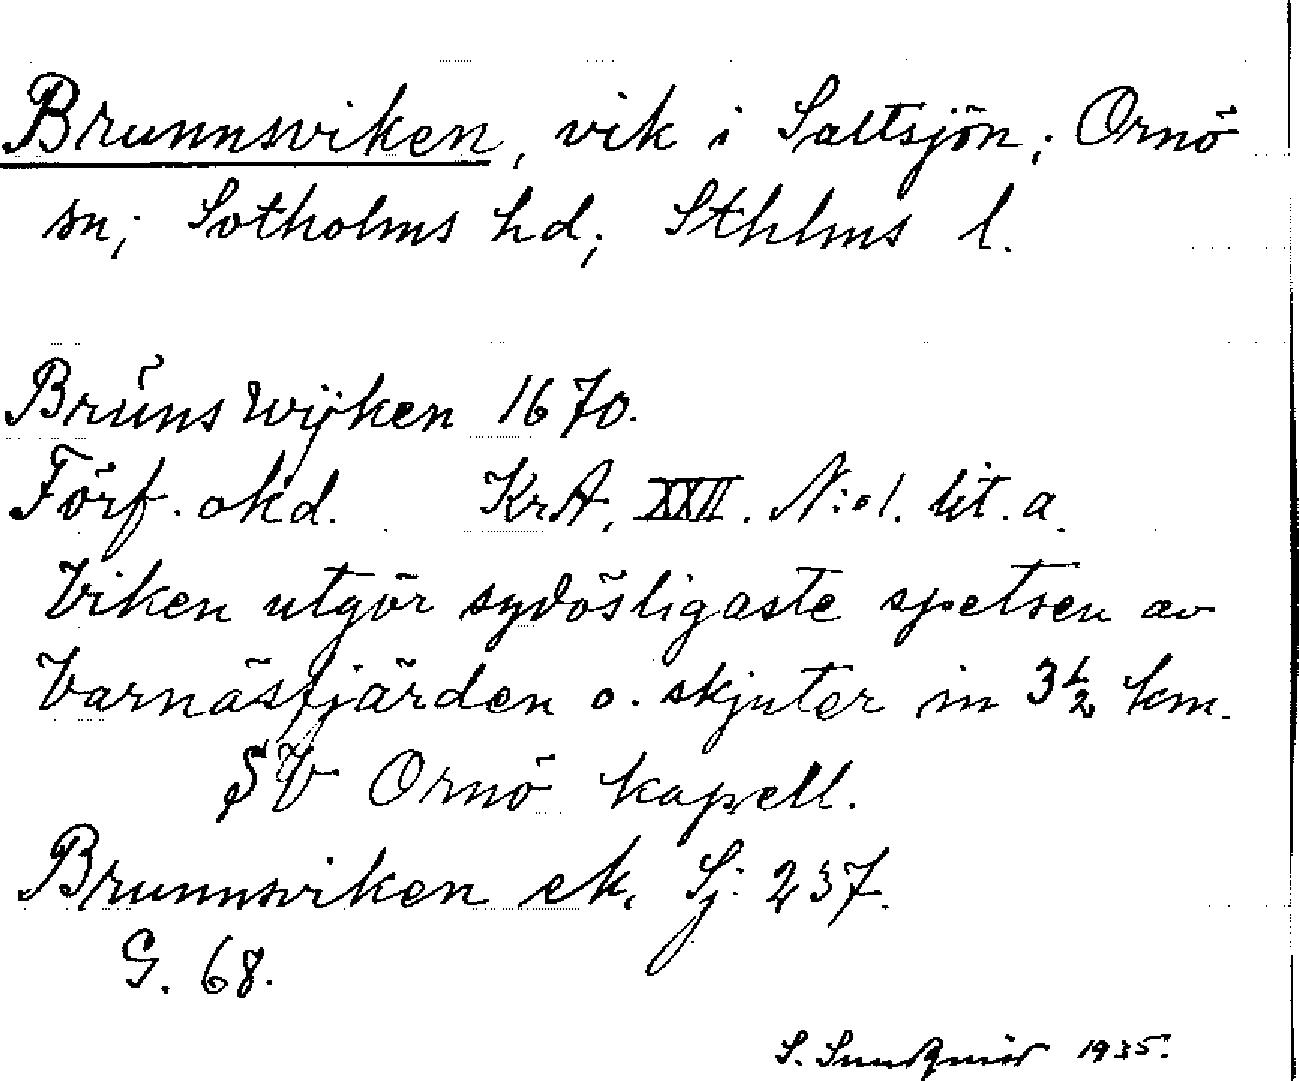 Brunnsviken, vik i Saltsjön; Ornö
sn; Sotholms hd; Sthlms l.
Brŭns Wijken 1670.
Förf. okd. KrA, XXII. N:o 1. lit. a.
Viken utgör sydösligaste spetsen av
Varnäsfjärden o. skjuter in 3 1/2 km.
SV Ornö kapell.
Brunnsviken ek. Sj: 237.
G. 68.
S. 1935.